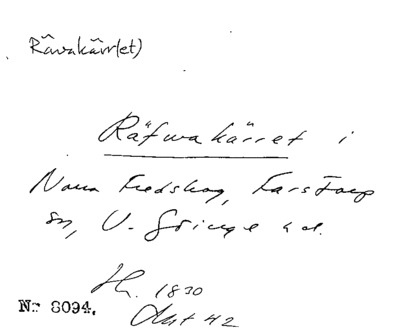 Råvakärr(et)
Räfwakärret i
Norra Fredskog, Karstorp
sn, V. Göinge hd.
1830
Akt 42
Nr 8094.